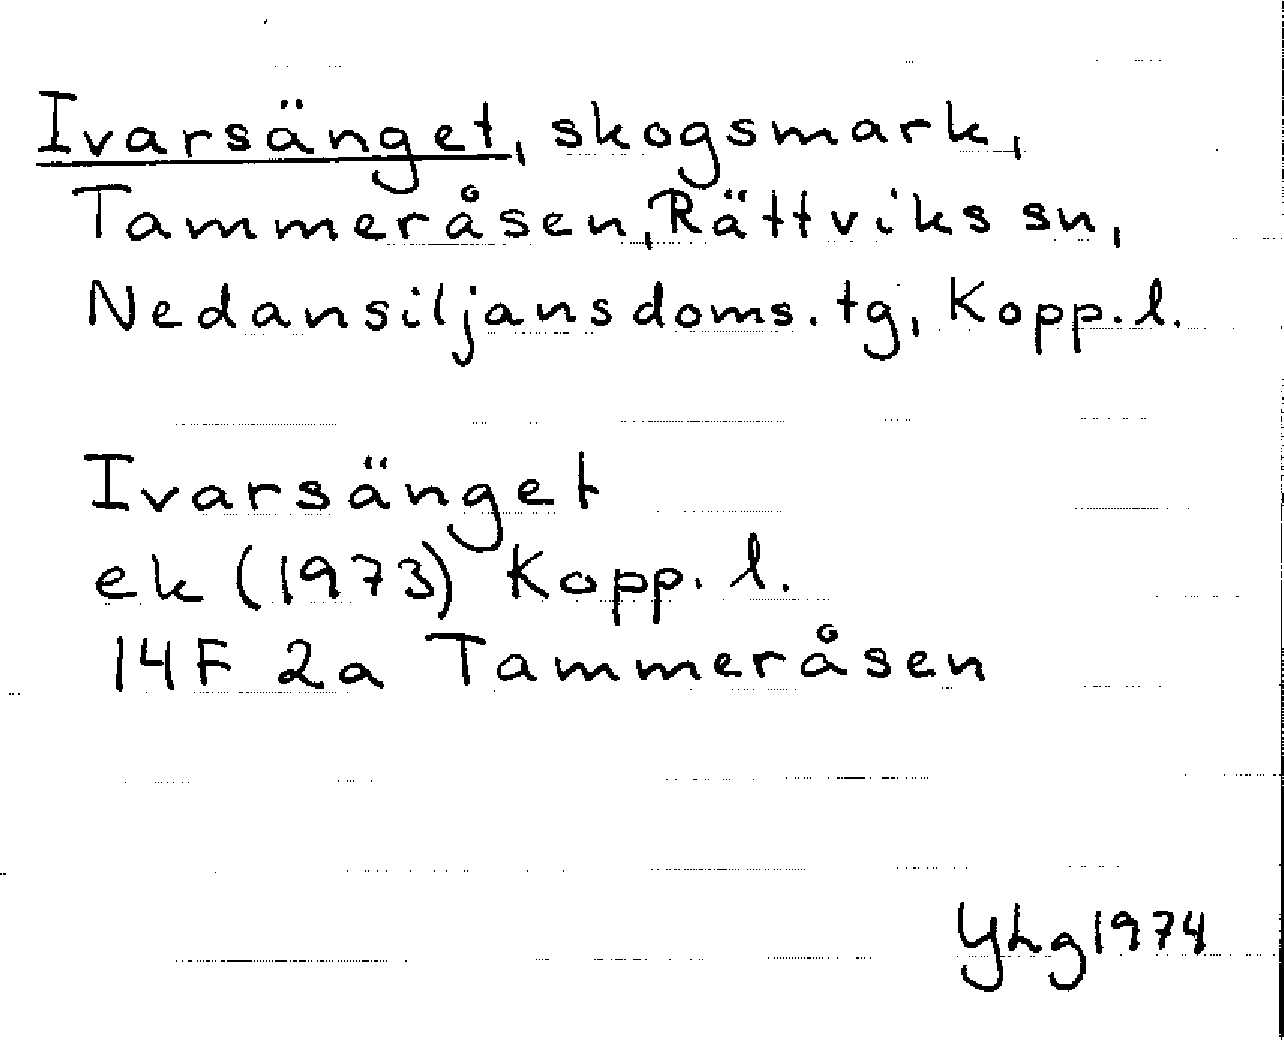 Ivarsänget, skogsmark,
Tammeråsen, Rättviks sn,
Nedansiljansdoms. tg, Kopp. l.
Ivarsänget
ek (1973) Kopp. l.
14F 2a Tammeråsen
YLg 1974